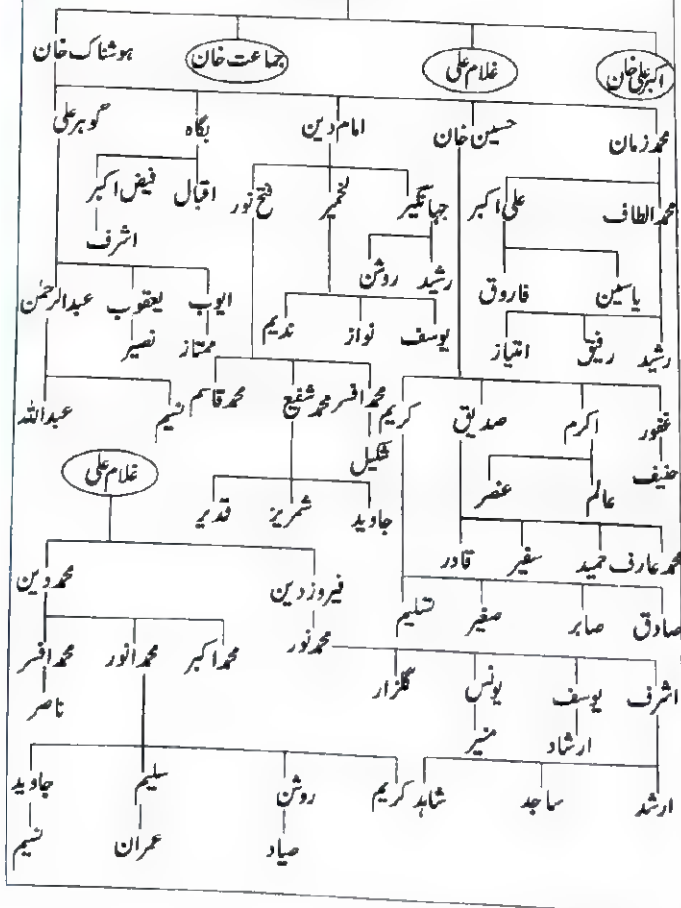 اکبر علی خان غلام علی جماعت خان ہوشناک خان
محمد زمان حسین خان امام دین بگاہ گوہر علی
محمد الطاف علی اکبر جہانگیر فتح نور اقبال فیض اکبر
اشرف
یاسین فاروق رشید روشن ایوب یعقوب عبدالرحمٰن
رشید رفیق امتیاز یوسف نواز ندیم ممتاز نصیر
غفور اکرم صدیق کریم محمد افسر محمد شفیع محمد قاسم نسیم عبداللہ
حنیف عالم عنصر شکیل غلام علی
جاوید شمریز قدیر
محمد عارف حمید سفیر قادر فیروز دین محمد دین
صادق صابر صغیر تسلیم محمد نور محمد اکبر محمد انور محمد افسر
اشرف یوسف یونس گلزار ناصر
ارشاد منیر
ارشد ساجد شاہد کریم روشن سلیم جاوید
صیاد عمران نسیم